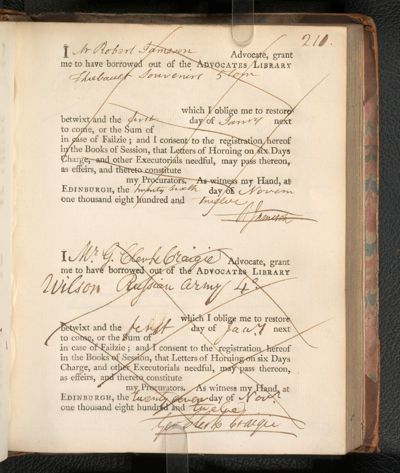 210.
I Mr Robert Jameson Advocate, grant
me to have borrowed out of the ADVOCATES LIBRARY
Thiebault Souvenirs 5 tom
which I oblige me to restore
betwixt and the first day of Janry next
to come, or the Sum of
in case of Failzie; and I consent to the registration hereof
in the Books of Session, that Letters of Horning on six Days
Charge, and other Executorials needful, may pass thereon,
as effeirs, and thereto constitute
my Procurators. As witness my Hand, at
EDINBURGH, the twenty sixth day of Novem
one thousand eight hundred and twelve
R Jameson
I Mr G. Clerk Craigie Advocate, grant
me to have borrowed out of the ADVOCATES LIBRARY
Wilson Russian Army 4o
which I oblige me to restore
betwixt and the first day of Jany next
to come, or the Sum of
in case of Failzie; and I consent to the registration hereof
in the Books of Session, that Letters of Horning on six Days
Charge, and other Executorials needful, may pass thereon,
as effeirs, and thereto constitute
my Procurators. As witness my Hand, at
EDINBURGH, the twenty seven day of Novr
one thousand eight hundred and twelve
Geo Clerk Craigie